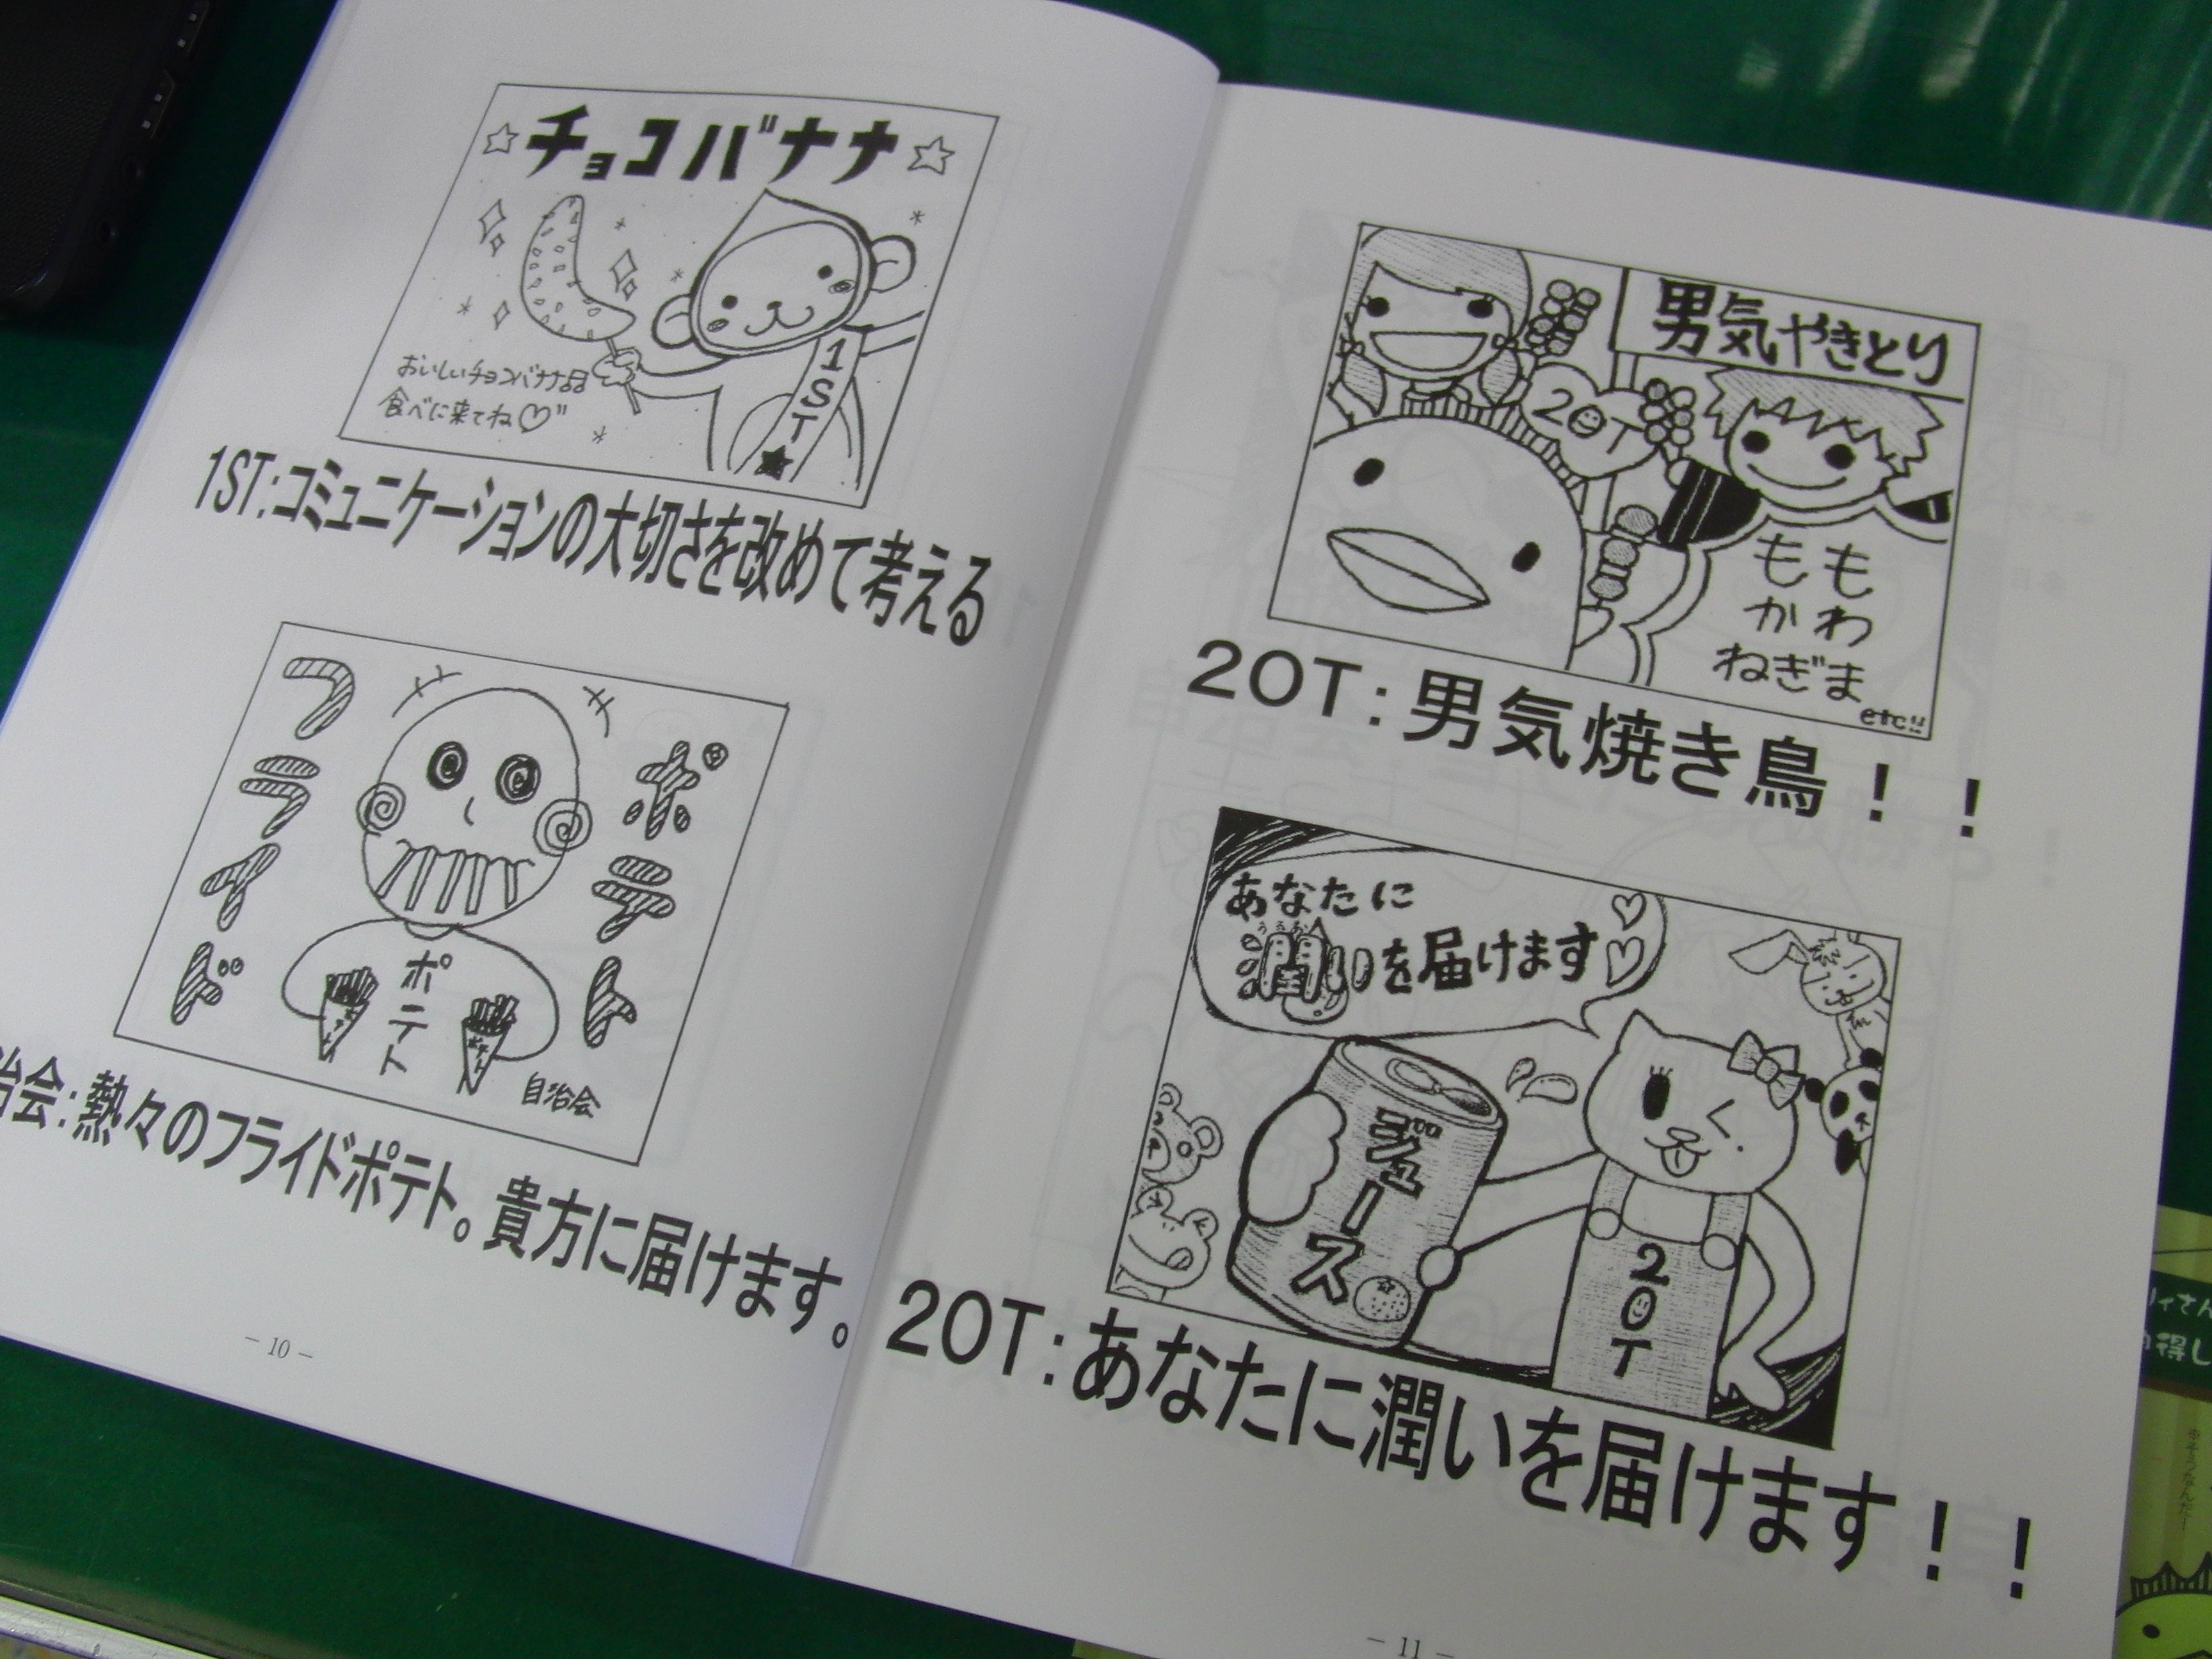 チョコバナナ
おいしいチョコバナナ
食べに来てね♡"
1ST★
1ST:コミュニケーションの大切さを改めて考える
フライド
ポテト
ポテト
自治会
治会:熱々のフライドポテト。貴方に届けます。
- 10 -
男気やきとり
2OT
もも
かわ
ねぎま
etc!!
2OT:男気焼き鳥!!
あなたに
潤いを届けます♡♡
ジュース
2OT
2OT:あなたに潤いを届けます!!
- 11 -